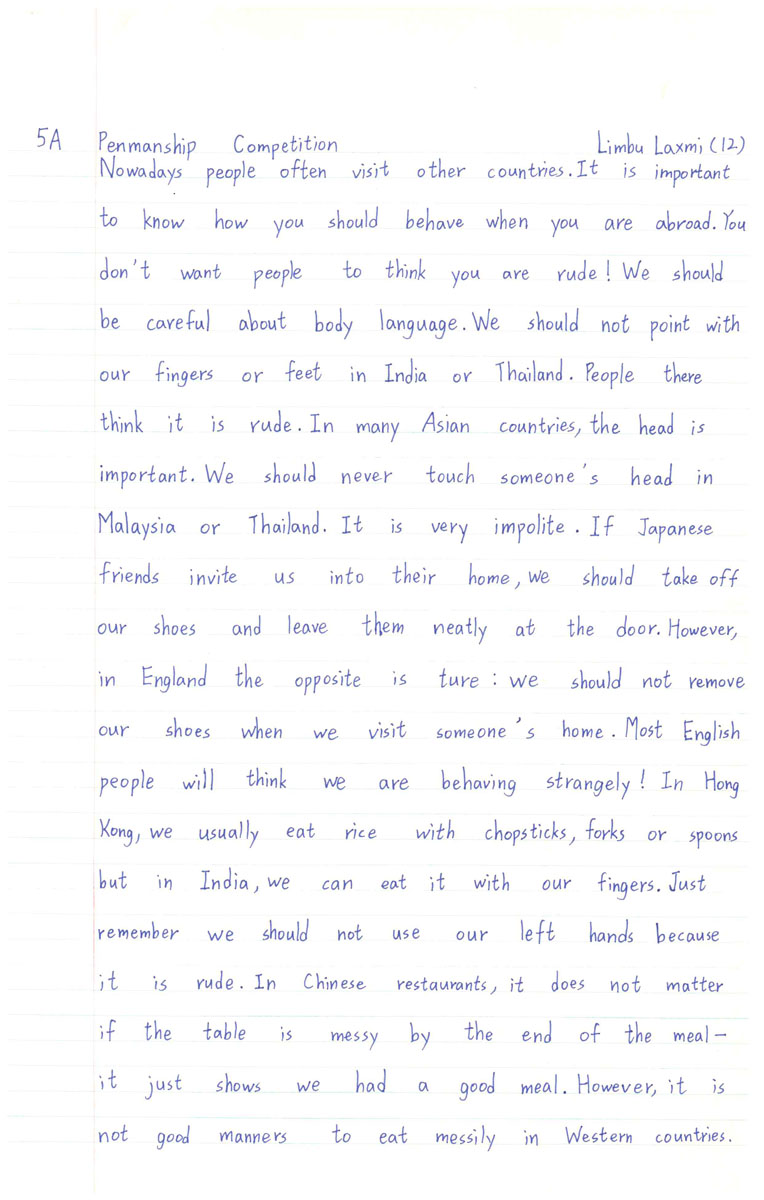 5A Penmanship Competition Limbu Laxmi (12)
Nowadays people often visit other countries. It is important
to know how you should behave when you are abroad. You
don't want people to think you are rude! We should
be careful about body language. We should not point with
our fingers or feet in India or Thailand. People there
think it is rude. In many Asian countries, the head is
important. We should never touch someone's head in
Malaysia or Thailand. It is very impolite. If Japanese
friends invite us into their home, we should take off
our shoes and leave them neatly at the door. However,
in England the opposite is ture: we should not remove
our shoes when we visit someone's home. Most English
people will think we are behaving strangely! In Hong
Kong, we usually eat rice with chopsticks, forks or spoons
but in India, we can eat it with our fingers. Just
remember we should not use our left hands because
it is rude. In Chinese restaurants, it does not matter
if the table is messy by the end of the meal-
it just shows we had a good meal. However, it is
not good manners to eat messily in Western countries.